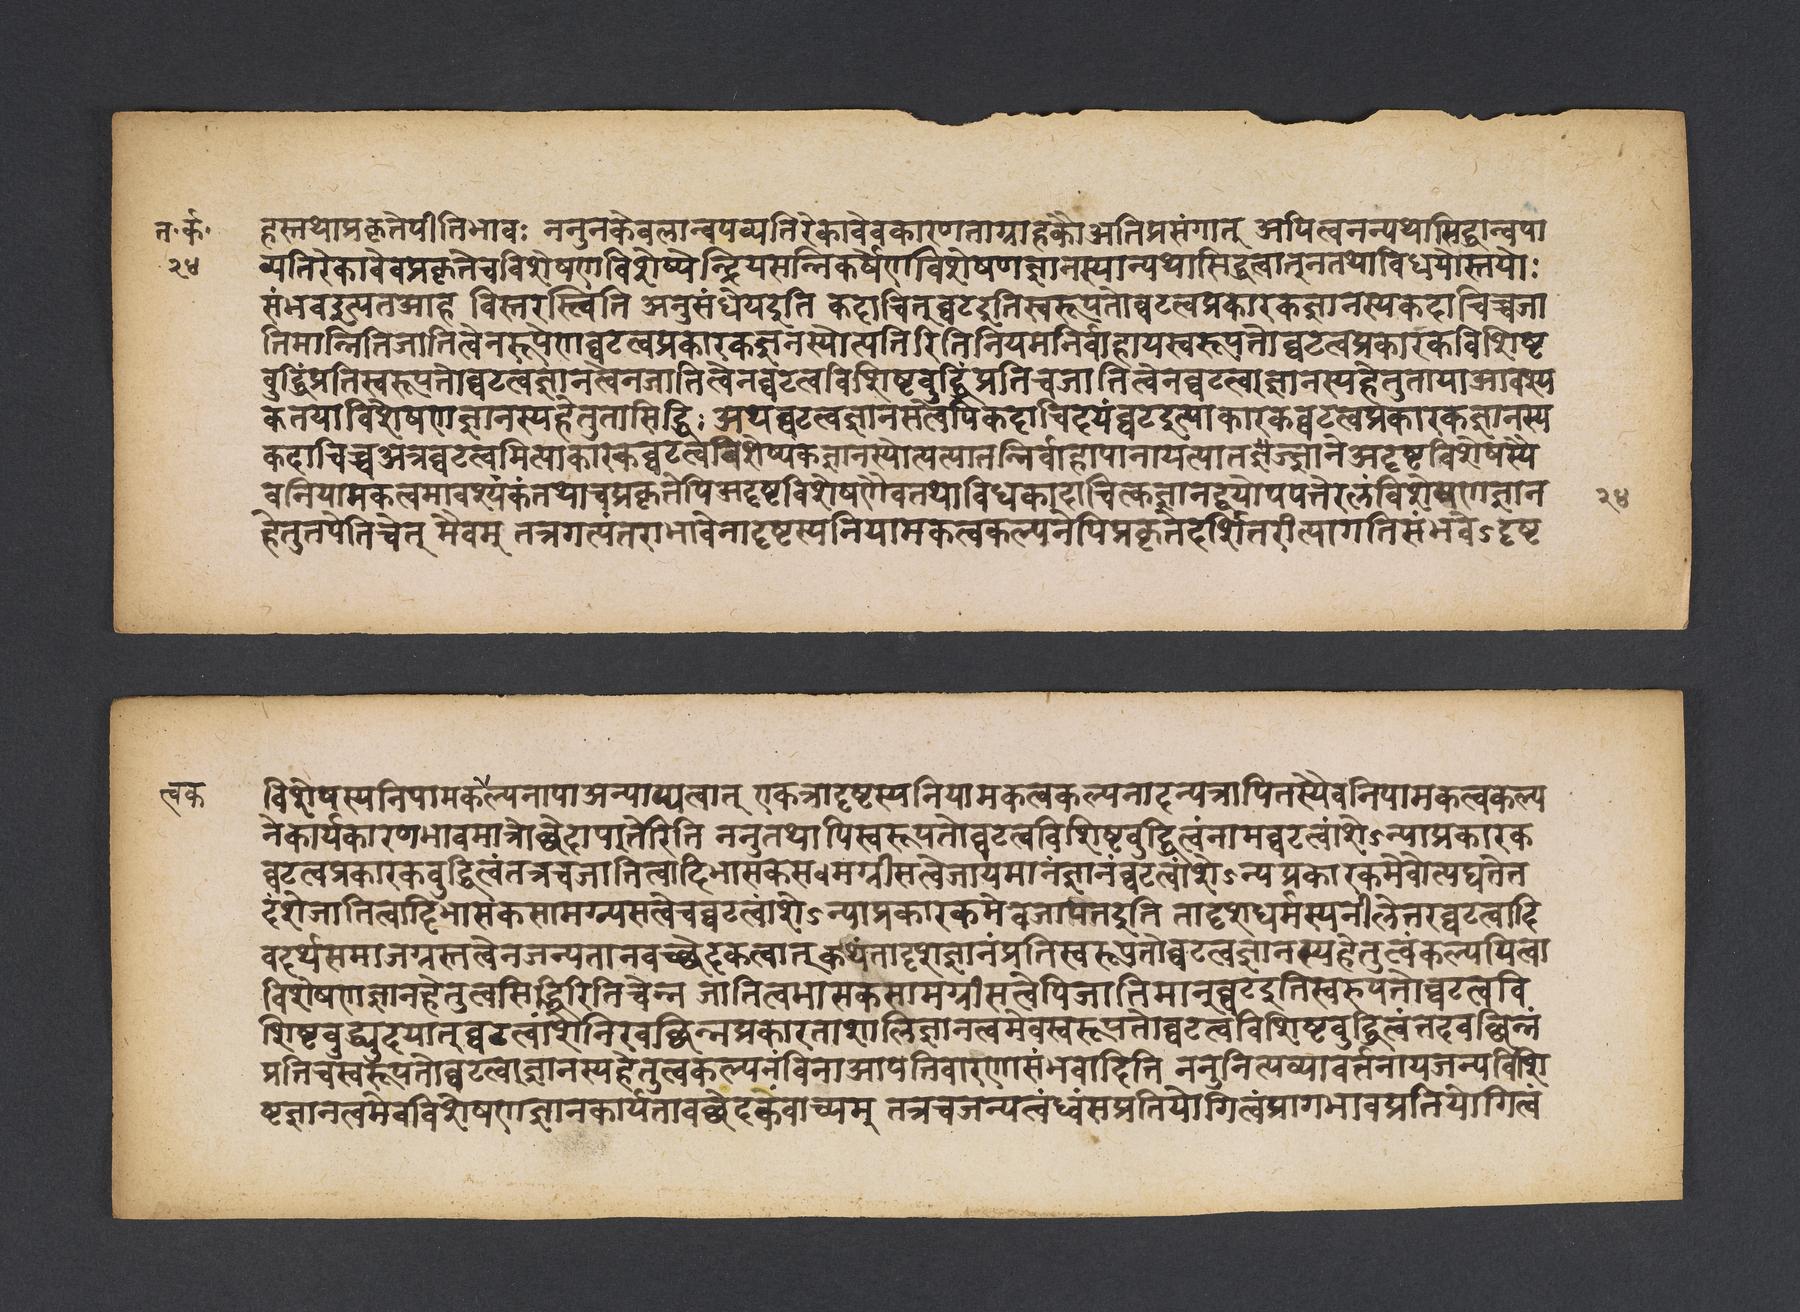 त॰र्क॰
२४
हस्तथाप्रकृतेपीतिभावः ननुनकेवलान्वयव्यतिरेकावेवकारणताग्राहकौअतिप्रसंगात् अपित्वनन्यथासिद्धान्वया
व्यतिरेकावेवप्रकृतेचविशेषणविशेष्येन्द्रियसन्निकर्षेणविशेषणज्ञानस्यान्यथासिद्धत्वात्नतथाविधयोस्तयोः
संभवइत्यतआह विस्तरस्त्विति अनुसंधेयइति कदाचित्घटइतिस्वरूपतोघटत्वप्रकारकज्ञानस्यकदाचिच्चजा
तिमान्नितिजातित्वेनरूपेणघटत्वप्रकारकज्ञानस्योत्पत्तिरितिनियमनिर्वाहायस्वरूपतोघटत्वप्रकारकविशिष्ट
बुद्धिंप्रतिस्वरूपतोघटत्वज्ञानत्वेनजातित्वेनघटत्वविशिष्टबुद्धिंप्रतिचजातित्वेनघटत्वाज्ञानस्यहेतुतायाआवश्य
कतयाविशेषणज्ञानस्यहेतुतासिद्धिः अथघटत्वज्ञानसत्वेपिकदाचिदयंघटइत्याकारकघटत्वप्रकारकज्ञानस्य
कदाचिच्चअत्रघटत्वमित्याकारकघटत्वविशेष्यकज्ञानस्योत्पत्यातन्निर्वाहापानायत्यातज्ञेज्ज्ञाने अदृष्टविशेषस्यै
वनियामकत्वमावश्यंकंतथाचप्रकृतेपिअदृष्टविशेषणैवतथाविधकादाचित्कज्ञानद्वयोपपत्तेरलंविशेषणज्ञान
२४
हेतुतयेतिचेत् मैवम् तत्रगत्यंतराभावेनादृष्टस्यनियामकत्वकल्पनेपिप्रकृतेदर्शितरीत्यागतिसंभवेऽदृष्ट
त्वक
विशेषस्यनियामकल्पनायाअन्याय्यत्वात् एकत्रादृष्टस्यनियामकत्वकल्पनादन्यत्रापितस्यैवनियामकत्वकल्प
नेकार्यकारणभावमात्रोच्छेदापातेरिति ननुतथापिस्वरूपतोघटत्वविशिष्टबुद्धित्वंनामघटत्वांशेऽन्याप्रकारक
घटत्वप्रकारकबुद्धित्वंतत्रचजातित्वादिभासकसामग्रीसत्वेजायमानंज्ञानंघटत्वांशेऽन्यप्रकारकमेवोत्पद्यतेत
दंशेजातित्वादिभासकसामग्र्यसत्वेचघटत्वांशेऽन्याप्रकारकमेवजायतइति तादृशधर्मस्यनीलेतरघटत्वादि
वदर्थसमाजग्रस्तत्वेनजन्यतानवच्छेदकत्वात् कथंतादृशज्ञानंप्रतिस्वरूपतोघटत्वज्ञानस्यहेतुत्वंकल्पयित्वा
विशेषणज्ञानहेतुत्वसिद्धिरितिचेन्न जातित्वभासकसामग्रीसत्वेपिजातिमान्घटइतिस्वरुपतोघटत्ववि
शिष्टबुद्ध्युदयात् घटत्वांशेनिरवच्छिन्नप्रकारताशालिज्ञानत्वमेवस्वरूपतोघटत्वविशिष्टबुद्धित्वंतदवच्छिन्नं
प्रतिचस्वरूपतोघटत्वाज्ञानस्यहेतुत्वकल्पनंविनाआपत्तिवारणासंभवादिति ननुनित्यव्यावर्त्तनायजन्यविशि
ष्टज्ञानत्वमेवविशेषणज्ञानकार्यतावच्छेदकंवाच्यम् तत्रचजन्यत्वंध्वंसप्रतियोगित्वंप्रागभावप्रतियोगित्वं